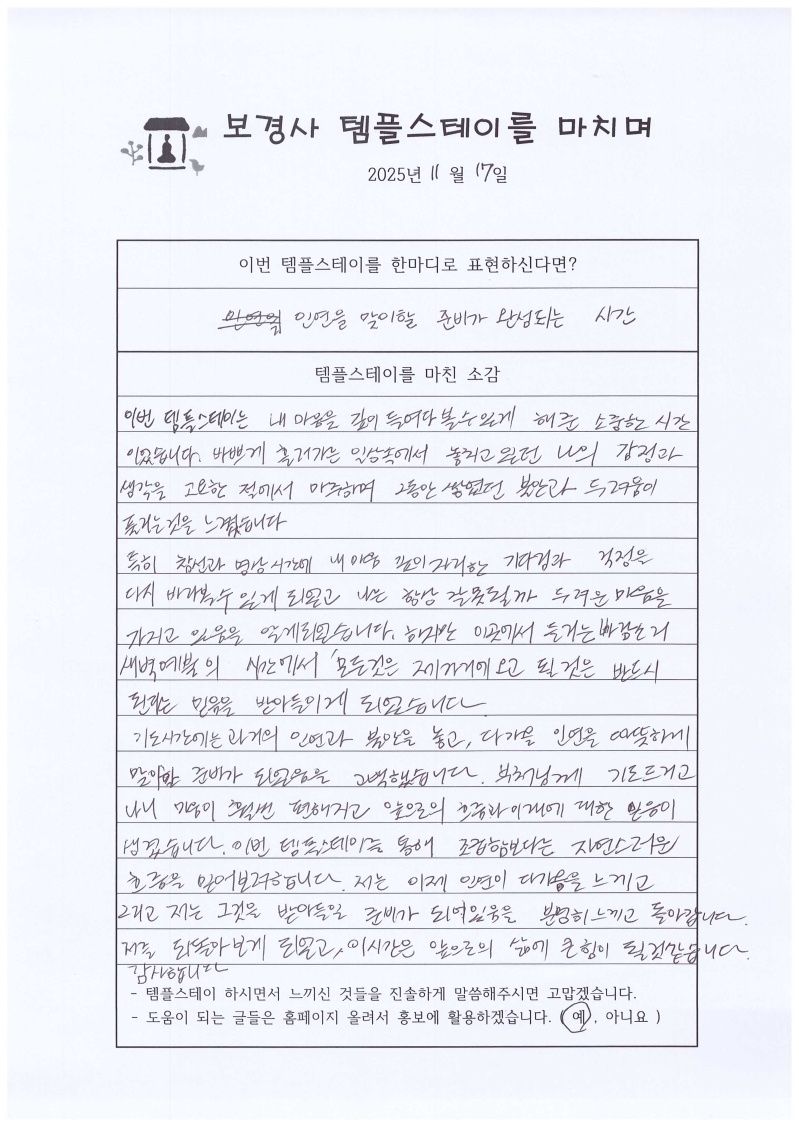 보경사 템플스테이를 마치며
2025년 11월 17일
이번 템플스테이를 한마디로 표현하신다면?
인연을 맞이할 준비가 완성되는 시간
템플스테이를 마친 소감
이번 템플스테이는 내 마음을 깊이 들여다 볼수있게 해준 소중한 시간
이었습니다. 바쁘게 흘러가는 일상속에서 놓치고 있던 나의 감정과
생각을 고요한 적에서 마주하며 그동안 쌓였던 불안과 두려움이
풀리는것을 느꼈습니다
특히 참선과 명상시간에 내 자리한 기다림과 걱정을
다시 바라볼수 있게 되었고 나는 항상 잘못될까 두려운 마음을
가지고 있음을 알게되었습니다. 하지만 이곳에서 들리는 바람소리
새벽예불의 시간에서 '모든것은 제자리에 오고 될 것은 반드시
된다는 믿음을 받아들이게 되었습니다.
기도시간에는 과거의 인연과 불안을 놓고, 다가올 인연을 따뜻하게
맞이할 준비가 되었음을 고백했습니다. 부처님께 기도드리고
나니 마음이 훨씬 편해지고 앞으로의 흐름과 미래에 대한 믿음이
생겼습니다. 이번 템플스테이를 통해 조급함보다는 자연스러운
흐름을 믿어보려합니다. 저는 이제 인연이 다가옴을 느끼고
그리고 저는 그것을 받아들일 준비가 되어있음을 분명히느끼고 돌아갑니다.
저를 되돌아보게 되었고, 이시간은 앞으로의 삶에 큰힘이 될것같습니다.
감사합니다
- 템플스테이 하시면서 느끼신 것들을 진솔하게 말씀해주시면 고맙겠습니다.
- 도움이 되는 글들은 홈페이지 올려서 홍보에 활용하겠습니다. ( 예, 아니요 )